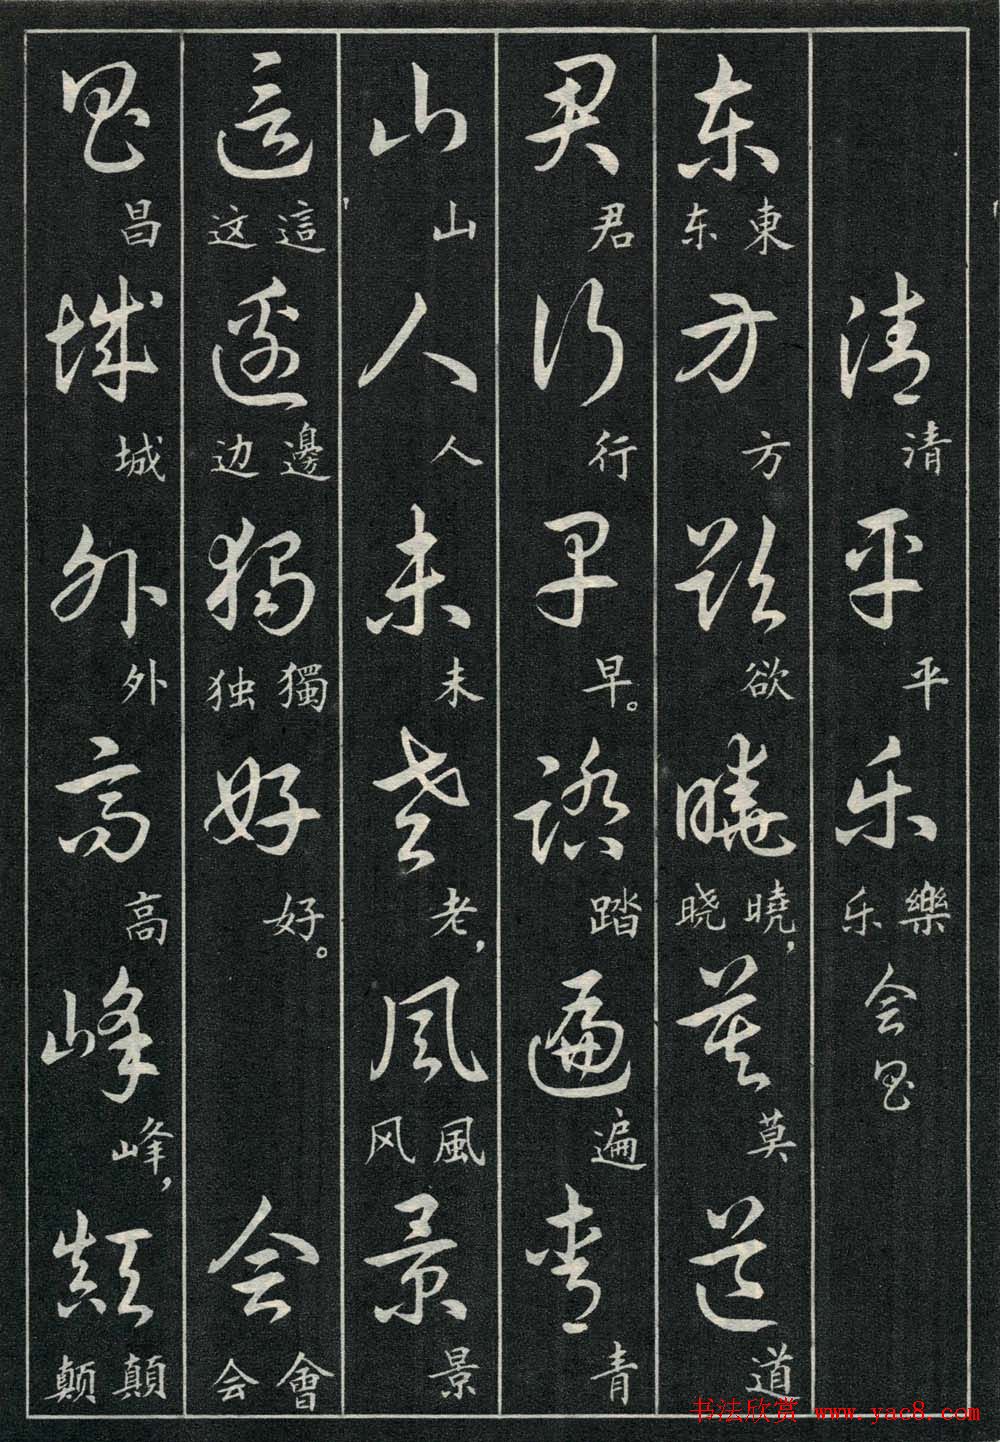 清清平平乐乐樂会昌
东东東方方欲欲晓晓曉，莫莫道道
君君行行早早。踏踏遍遍青青
山山人人未未老老，风风風景景
这这這边边邊独独獨好好。会会會
昌昌城城外外高高峰峰，颠颠顛
书法欣赏 www.yac8.com